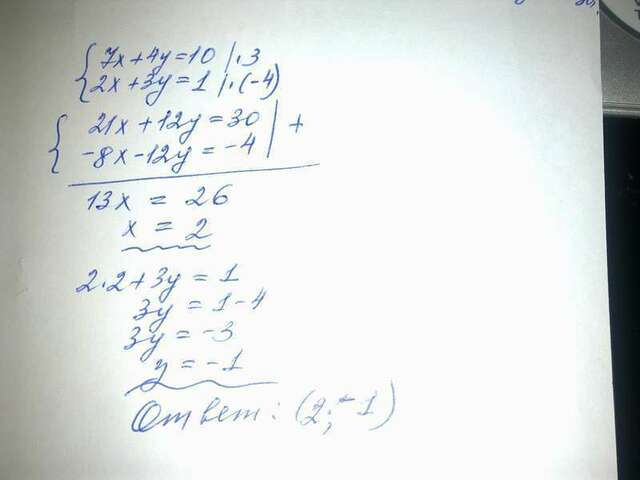 { 7x + 4y = 10 | · 3
{ 2x + 3y = 1 | · (-4)
{ 21x + 12y = 30 | +
{ -8x - 12y = -4 |
13x = 26
x = 2
2 · 2 + 3y = 1
3y = 1 - 4
3y = -3
y = -1
Ответ: (2; -1)